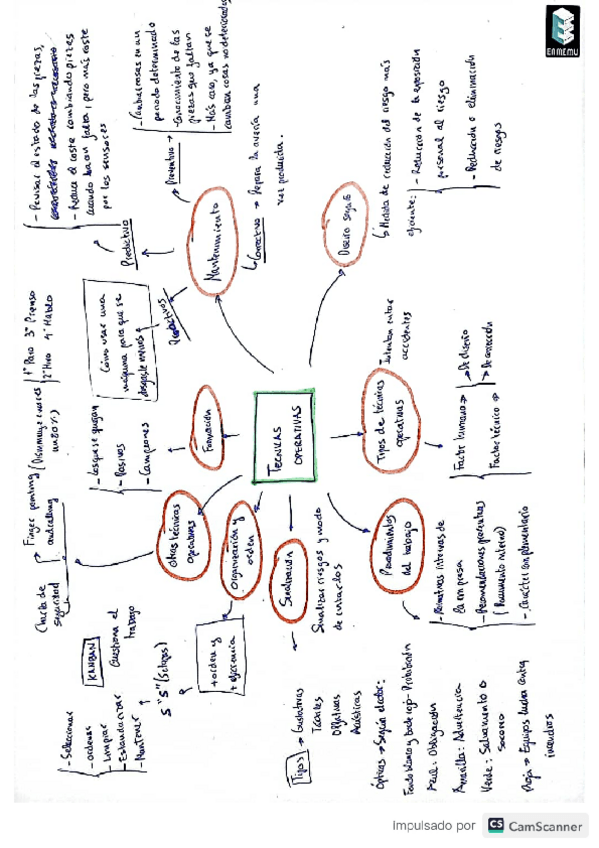 TECNICAS
OPERATIVAS
Mantenimiento
Predictivo
- Revisar el estado de las piezas,
- Reduce el coste cambiando piezas
cuando hacen falta, pero más coste
por los sensores
Preventivo →
- Cambiar cosas en un
periodo determinado
- Conocimiento de las
piezas que faltan
- Más caro, ya que se
cambian cosas no deterioradas
↳ Correctivo → Repara la avería una
vez producida.
Productivos
Cómo usar una
máquina para que se
desgaste menos
Diseño seguro
↳ Medida de reducción del riesgo más
eficiente:
- Reducción de la exposición
personal al riesgo
- Reducción o eliminación
de riesgos
Tipos de técnicas
operativas
- Intentan evitar
accidentes
Factor humano →
Factor técnico →
→ De diseño
→ De corrección
Procedimientos
del trabajo
- Normativas internas de
la empresa
- Recomendaciones preventivas
(Documento interno)
- Carácter complementario
Señalización
Señalizar riesgos y modo
de evitarlos
Tipos → Gustativas
Táctiles
Olfativas
Acústicas
Ópticas → Según color:
Fondo blanco y borde rojo - Prohibición
Azul: Obligación
Amarilla: Advertencia
Verde: Salvamento o
socorro
Roja → Equipos lucha contra
incendios
Organización y
orden
+ orden y
+ eficiencia
5 "S" (5 etapas)
- Seleccionar
- Ordenar
- Limpiar
- Estandarizar
- Mantener
KANBAN
Gestiona el
trabajo
Otras técnicas
operativas
Charla de
seguridad
Finger pointing
and calling
1º Paro 3º Pienso
2º Miro 4º Hablo
Formación
- Los que se quejan
- Pasivos
- Campeones
ENMEMU
Impulsado por CS CamScanner